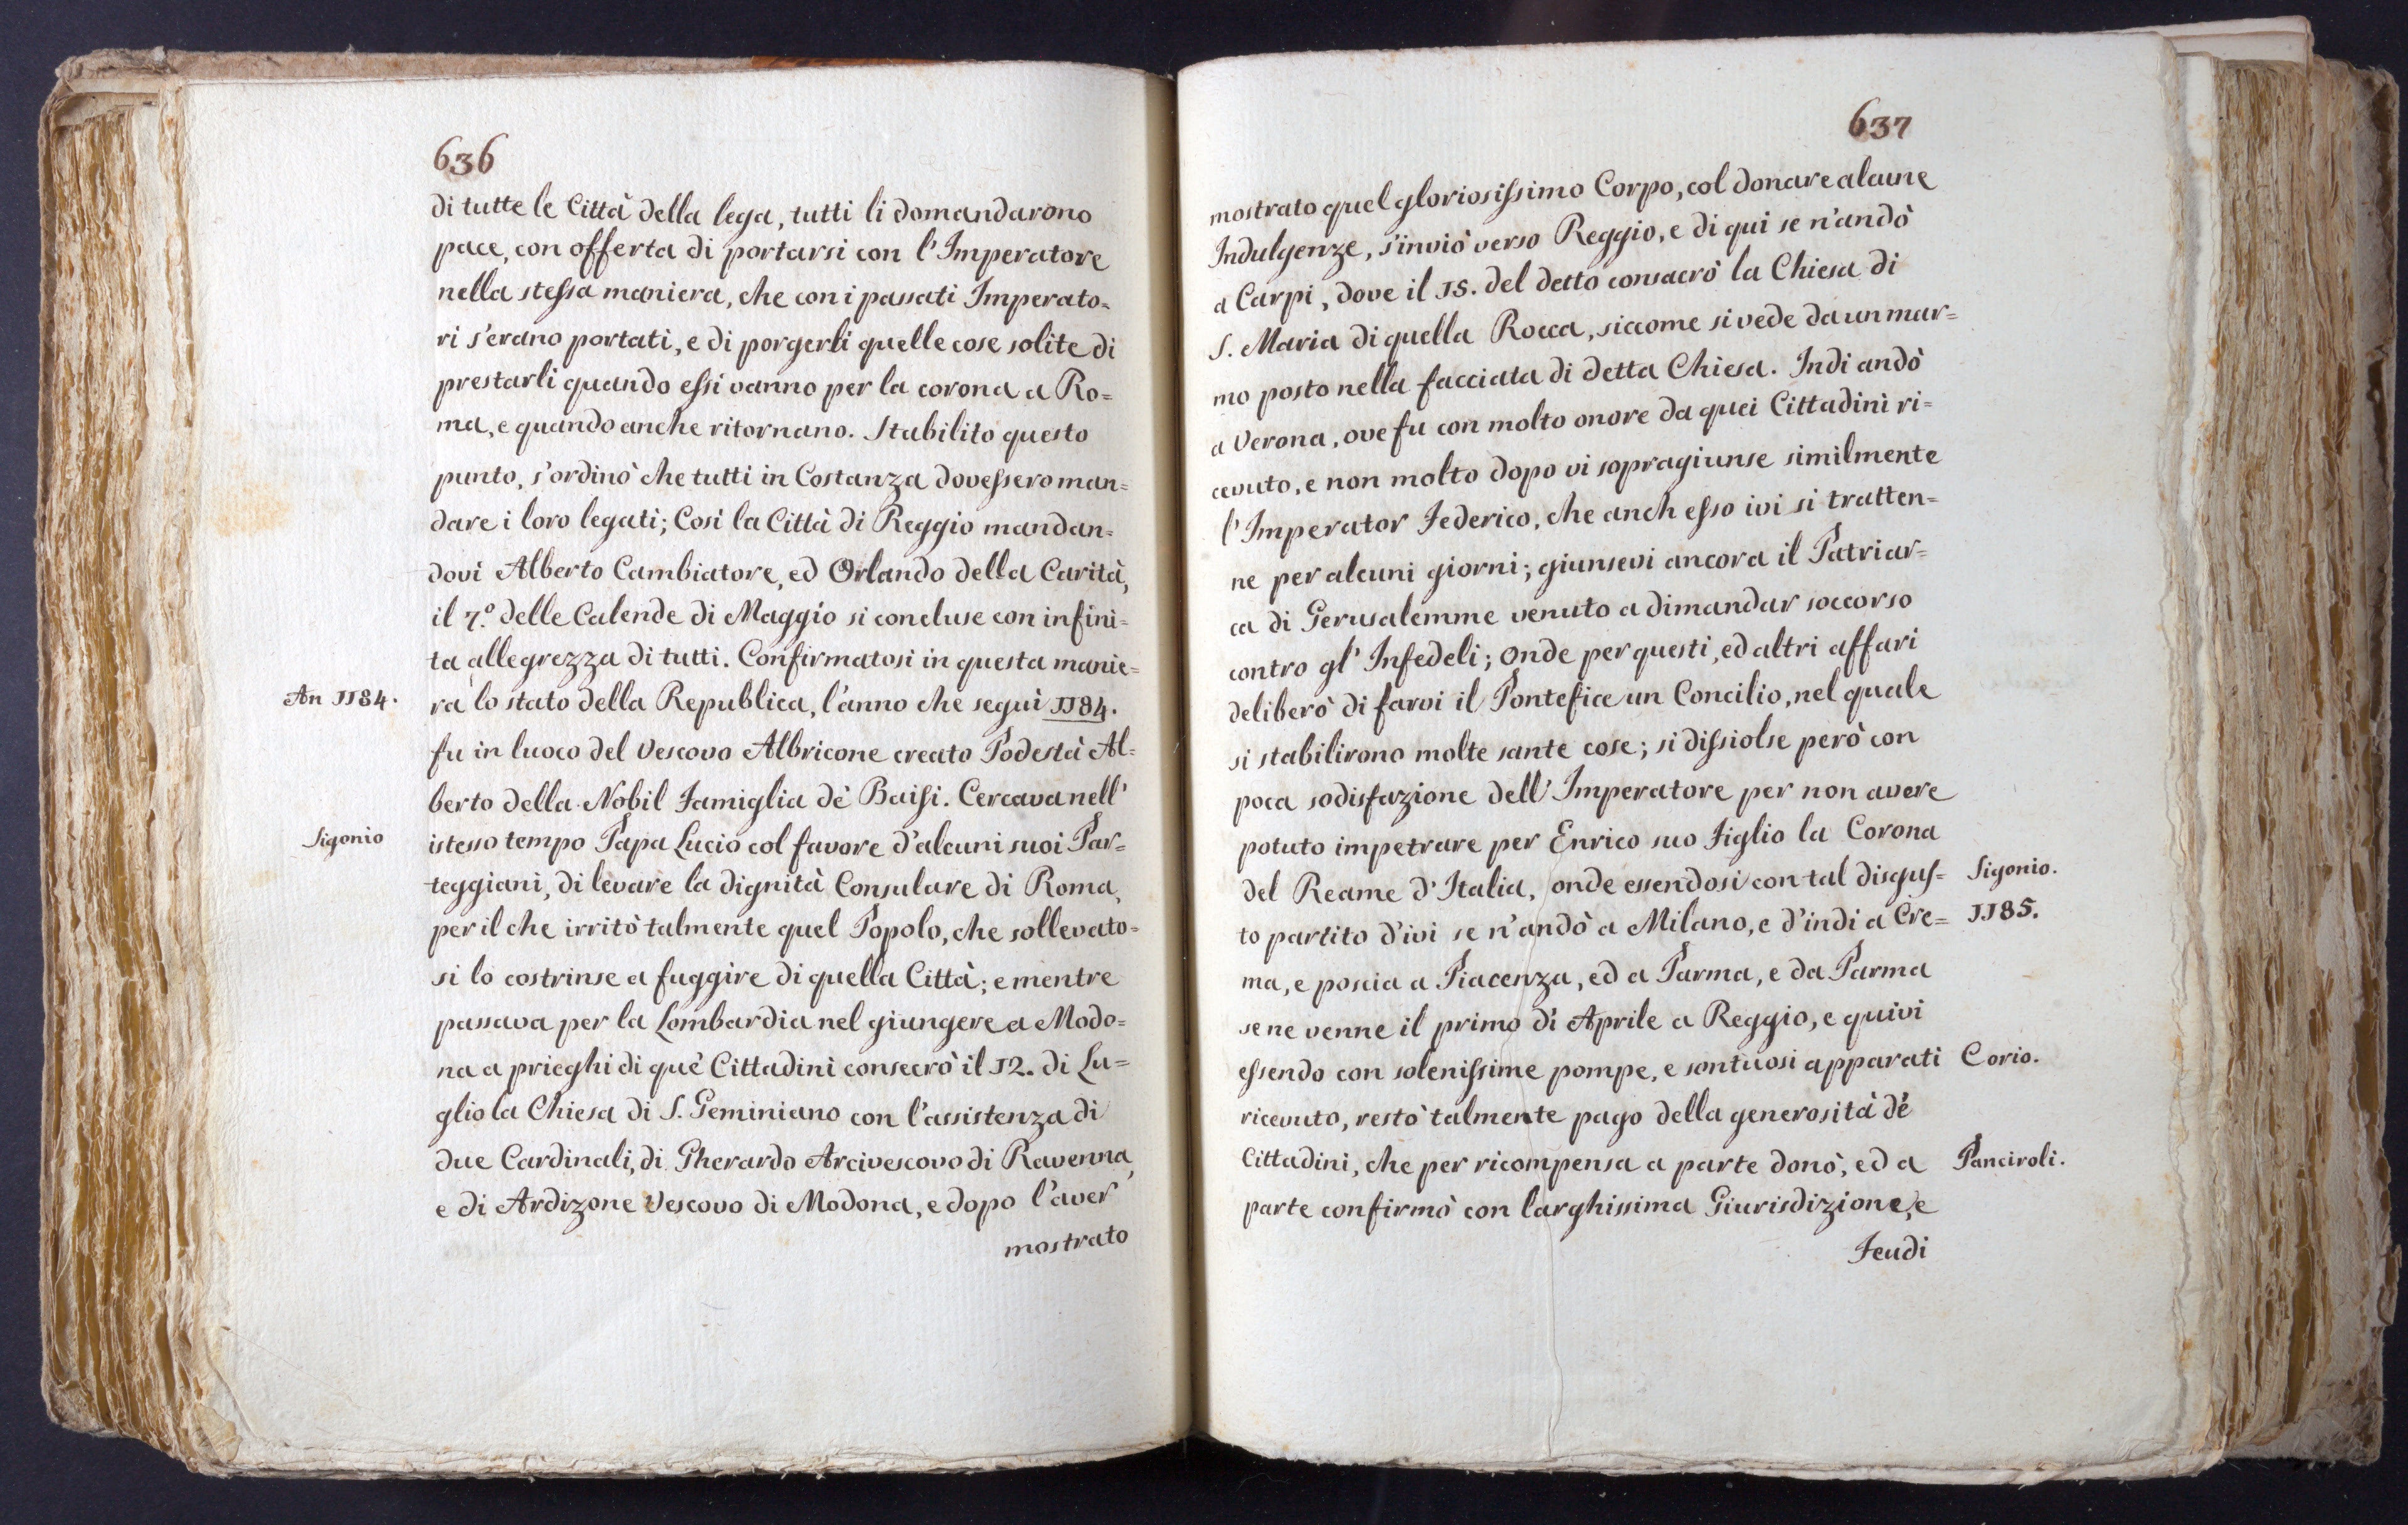 636
di tutte le Città della lega, tutti li domandarono
pace, con offerta di portarsi con l'Imperatore
nella stessa maniera, che con i passati Imperato=
ri s'erano portati, e di porgerli quelle cose solite di
prestarli quando essi vanno per la corona a Ro=
ma, e quando anche ritornano. Stabilito questo
punto, s'ordinò che tutti in Costanza dovessero man=
dare i loro legati; Così la Città di Reggio mandan=
dovi Alberto Cambiatore, ed Orlando della Carità,
il 7.º delle Calende di Maggio si concluse con infini=
ta allegrezza di tutti. Confirmatosi in questa manie=
An 1184.
ra lo stato della Republica, l'anno che seguì 1184.
fu in luoco del Vescovo Albricone creato Podestà Al=
berto della Nobil Famiglia dè Baisi. Cercava nell'
Sigonio
istesso tempo Papa Lucio col favore d'alcuni suoi Par=
teggiani, di levare la dignità Consulare di Roma,
per il che irritò talmente quel Popolo, che sollevato=
si lo costrinse a fuggire di quella Città; e mentre
passava per la Lombardia nel giungere a Modo=
na a prieghi di què Cittadini consecrò il 12. di Lu=
glio la Chiesa di S. Geminiano con l'assistenza di
due Cardinali, di Gherardo Arcivescovo di Ravenna,
e di Ardizone Vescovo di Modona, e dopo l'aver
mostrato
637
mostrato quel gloriosissimo Corpo, col donare alcune
Indulgenze, s'inviò verso Reggio, e di qui se n'andò
a Carpi, dove il 15. del detto consacrò la Chiesa di
S. Maria di quella Rocca, siccome si vede da un mar=
mo posto nella facciata di detta Chiesa. Indi andò
a Verona, ove fu con molto onore da quei Cittadini ri=
cevuto, e non molto dopo vi sopragiunse similmente
l'Imperator Federico, che anch esso ivi si tratten=
ne per alcuni giorni; giunsevi ancora il Patriar=
ca di Gerusalemme venuto a dimandar soccorso
contro gl' Infedeli; onde per questi, ed altri affari
deliberò di farvi il Pontefice un Concilio, nel quale
si stabilirono molte sante cose; si dissiolse però con
poca sodisfazione dell' Imperatore per non avere
potuto impetrare per Enrico suo Figlio la Corona
del Reame d'Italia, onde essendosi con tal disgus=
Sigonio.
to partito d'ivi se n'andò a Milano, e d'indi a Cre=
1185.
ma, e poscia a Piacenza, ed a Parma, e da Parma
se ne venne il primo di Aprile a Reggio, e quivi
essendo con solenissime pompe, e sontuosi apparati
Corio.
ricevuto, restò talmente pago della generosità dè
Cittadini, che per ricompensa a parte donò, ed a
Panciroli.
parte confirmò con larghissima Giurisdizione, e
Feudi